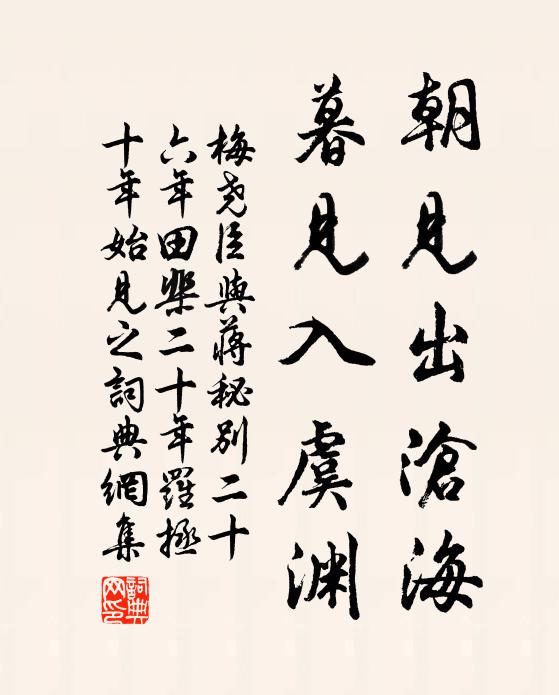 朝見出滄海
暮見入虞渊
梅尧臣與蔣秘别二十
六年田棐二十年羅拯
十年始見之詞典網集
詞典网印